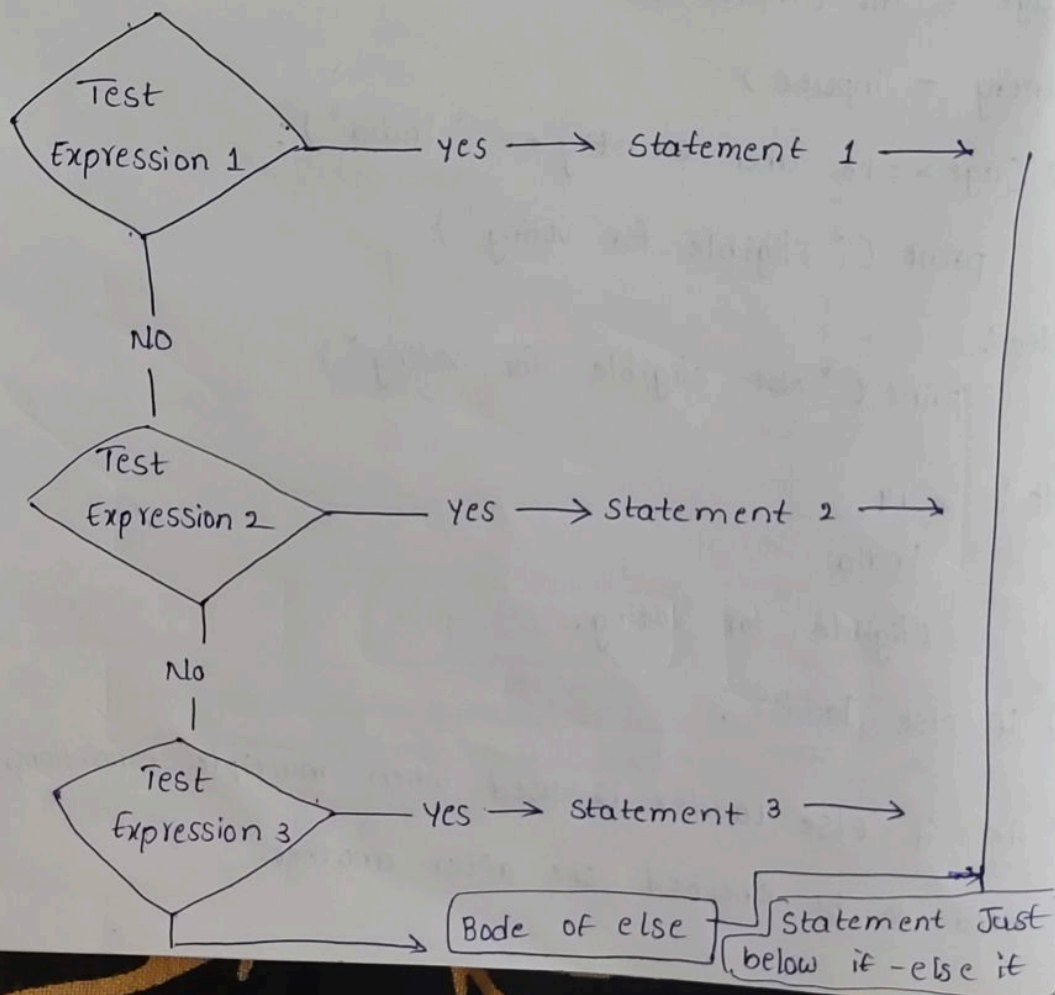 Test
Expression 1
yes
Statement 1
NO
Test
Expression 2
yes
Statement 2
No
Test
Expression 3
yes
Statement 3
Bode of else
Statement Just
below if-else it